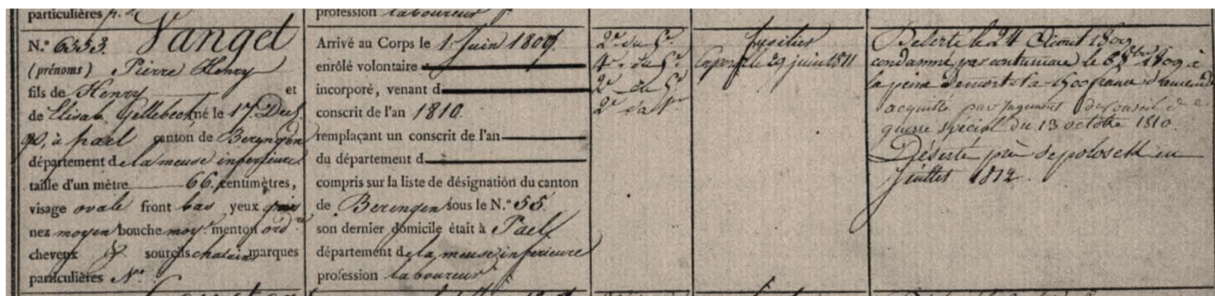 particulières
N.° 6353. Vanget
(prénoms) Pierre Henry
fils de Henry et
de Elisab. Gellebeck né le 17. Decb.
90, à pael canton de Beringen
département de la meuse inferieure
taille d'un mètre 66. centimètres,
visage ovale front bas yeux gris
nez moyen bouche moy. menton ord.re
cheveux & sourcils chatain marques
particulières N.
profession laboureur
Arrivé au Corps le 1. Juin 1809.
enrôlé volontaire
incorporé, venant d
conscrit de l'an 1810.
remplaçant un conscrit de l'an
du département d
compris sur la liste de désignation du canton
de Beringen sous le N.° 55.
son dernier domicile était à Pael
département de la meuse inferieure
profession laboureur
2.e du 5.e
4.e du 5.e
2.e du 5.e
2.e du 4.e
fusilier
Caporal le 29 juin 1811
Déserté le 24 Aout 1809
condamné par contumace le 6 8bre 1809 à
la peine de mort
acquitté par jugement du conseil de
guerre spécial du 13 octobre 1810.
Déserté près de polosck en
Juillet 1812.